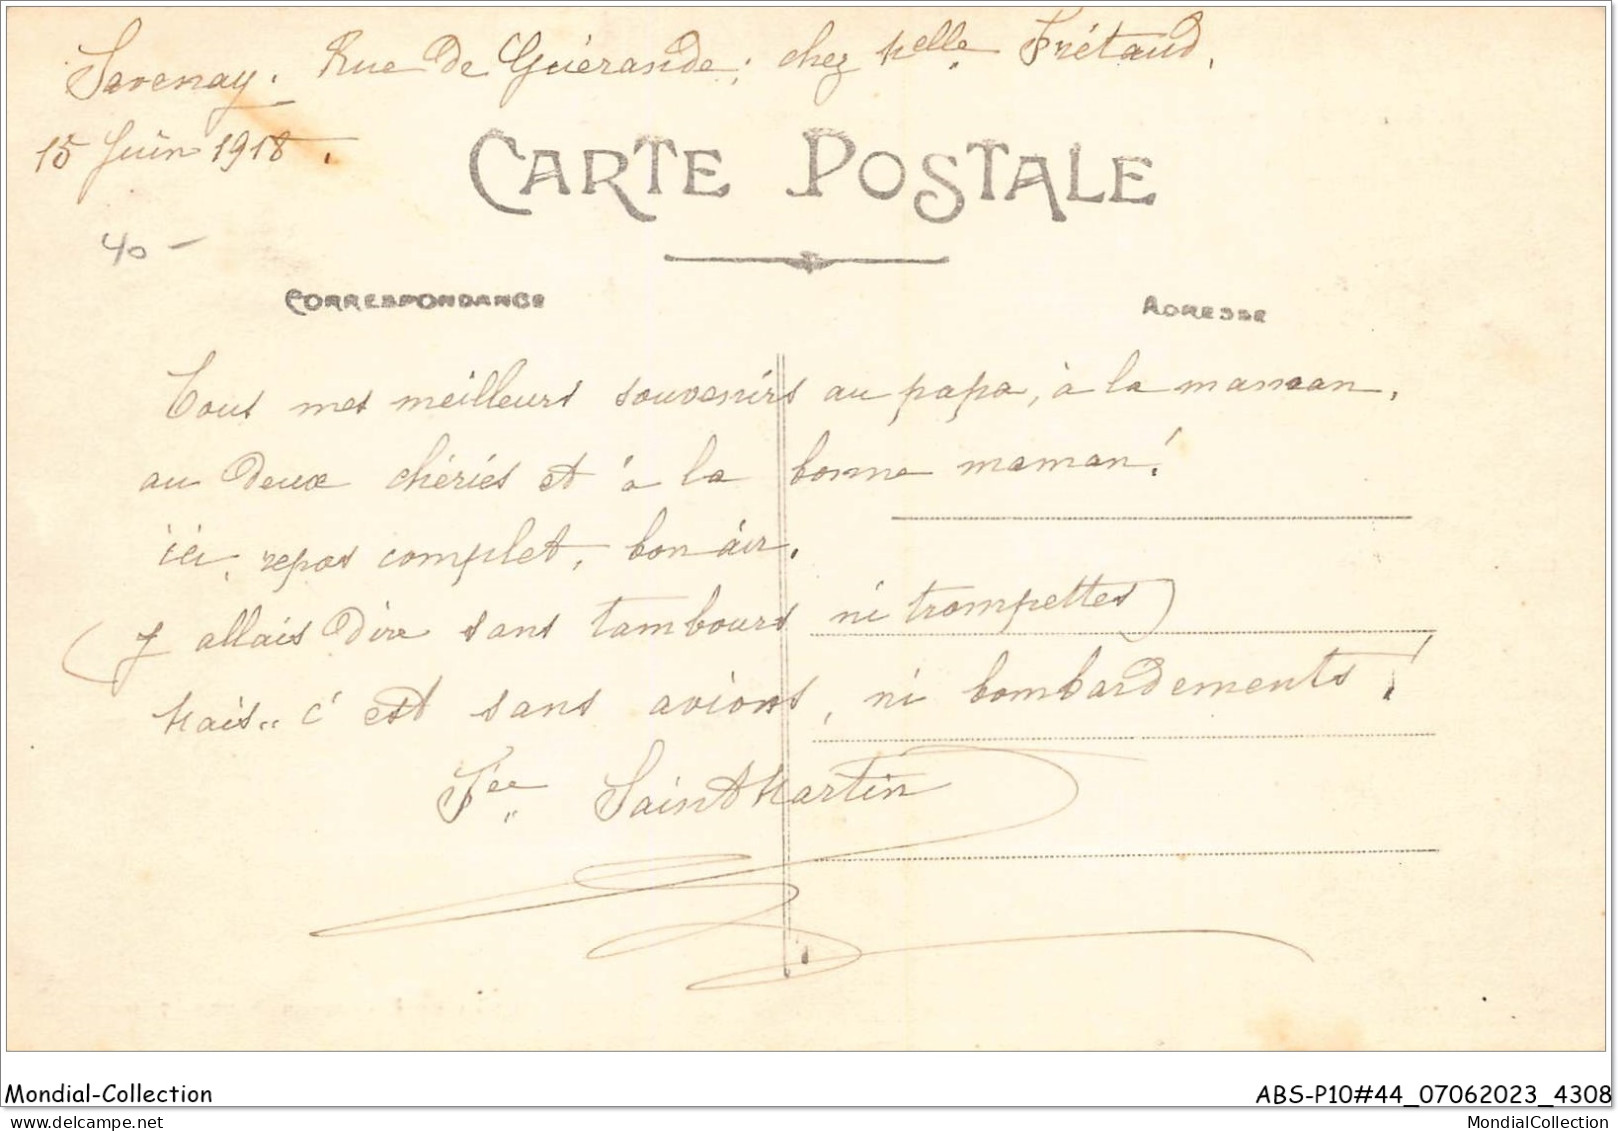 Savenay. Rue de Guérande; chez Melle Frétaud.
15 Juin 1918.
CARTE POSTALE
40 -
CORRESPONDANCE
ADRESSE
Tous mes meilleurs souvenirs au papa, à la maman,
au deux chéries et à la bonne maman!
ici, repos complet, bon air.
(J'allais dire sans tambours ni trompettes)
Mais.. c'est sans avions, ni bombardements!
Saint Martin
Mondial-Collection
ABS-P10#44_07062023_4308
MondialCollection